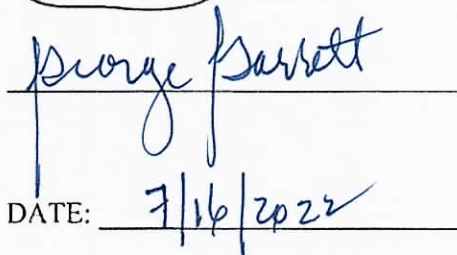 George Garrett
DATE: 7/16/2022